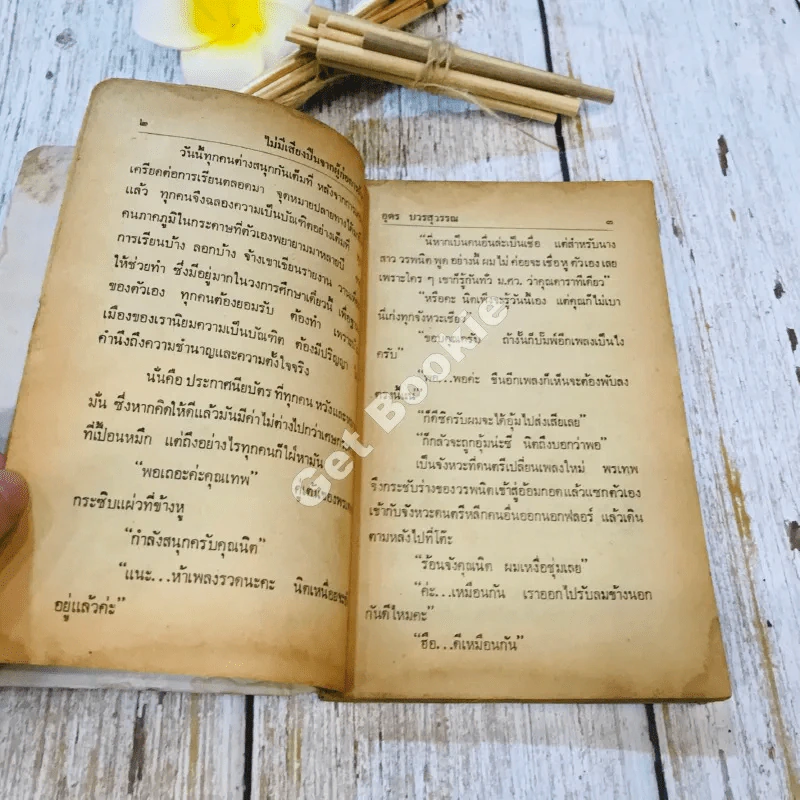 ๒
ไม่มีเสียงปืนจากผู้
วันนี้ทุกคนต่างสนุกกันเต็มที่ หลังจากการ
เครียดต่อการเรียนตลอดมา จุดหมายปลายทางได้
แล้ว ทุกคนจึงฉลองความเป็นบัณฑิตอย่างเต็มที่
คนภาคภูมิในกระดาษที่ตัวเองพยายามมาหลายปี
การเรียนบ้าง ลอกบ้าง จ้างเขาเขียนรายงาน
ให้ช่วยทำ ซึ่งมีอยู่มากในวงการศึกษาเดี๋ยวนี้ เพื่อ
ของตัวเอง ทุกคนต้องยอมรับ ต้องทำ เพราะ
เมืองของเรานิยมความเป็นบัณฑิต ต้องมีปริญญา
คำนึงถึงความชำนาญและความตั้งใจจริง
นั่นคือ ประกาศนียบัตร ที่ทุกคน หวังและ
มั่น ซึ่งหากคิดให้ดีแล้วมันมีค่าไม่ต่างไปกว่าเศษ
ที่เปื้อนหมึก แต่ถึงอย่างไรทุกคนก็ไฝ่หามัน
“พอเถอะค่ะคุณเทพ”
กระซิบแผ่วที่ข้างหู
“กำลังสนุกครับคุณนิต”
“แนะ...ห้าเพลงรวดนะคะ นิตเหนื่อยจะ
อยู่แล้วค่ะ”
อุดร บวรสุวรรณ ๓
“นี่หากเป็นคนอื่นล่ะเป็นเชื่อ แต่สำหรับนาง
สาว วรพนิต พูด อย่างนี้ ผม ไม่ ค่อยจะ เชื่อ หู ตัวเอง เลย
เพราะใคร ๆ เขาก็รู้กันทั่ว ม.ศว. ว่าคุณดาราทีเดียว”
“หรือคะ นิตเพิ่งจะรู้วันนี้เอง แต่คุณก็ไม่เบา
นี่เก่งทุกจังหวะเชียว”
“ขอบคุณครับ ถ้างั้นก็ปั๊มพ์อีกเพลงเป็นไง
ครับ”
“พอ...พอค่ะ ขืนอีกเพลงก็เห็นจะต้องพับลง
ตรงนี้แน่”
“ก็ดีซิครับผมจะได้อุ้มไปส่งเสียเลย”
“ก็กลัวจะถูกอุ้มน่ะซี นิตถึงบอกว่าพอ”
เป็นจังหวะที่ดนตรีเปลี่ยนเพลงใหม่ พรเทพ
จึงกระชับร่างของวรพนิตเข้าสู่อ้อมกอดแล้วแซกตัวเอง
เข้ากับจังหวะดนตรีหลีกคนอื่นออกนอกฟลอร์ แล้วเดิน
ตามหลังไปที่โต๊ะ
“ร้อนจังคุณนิต ผมเหงื่อชุ่มเลย”
“ค่ะ...เหมือนกัน เราออกไปรับลมข้างนอก
กันดีไหมคะ”
“ฮือ...ดีเหมือนกัน”
Get Bookie